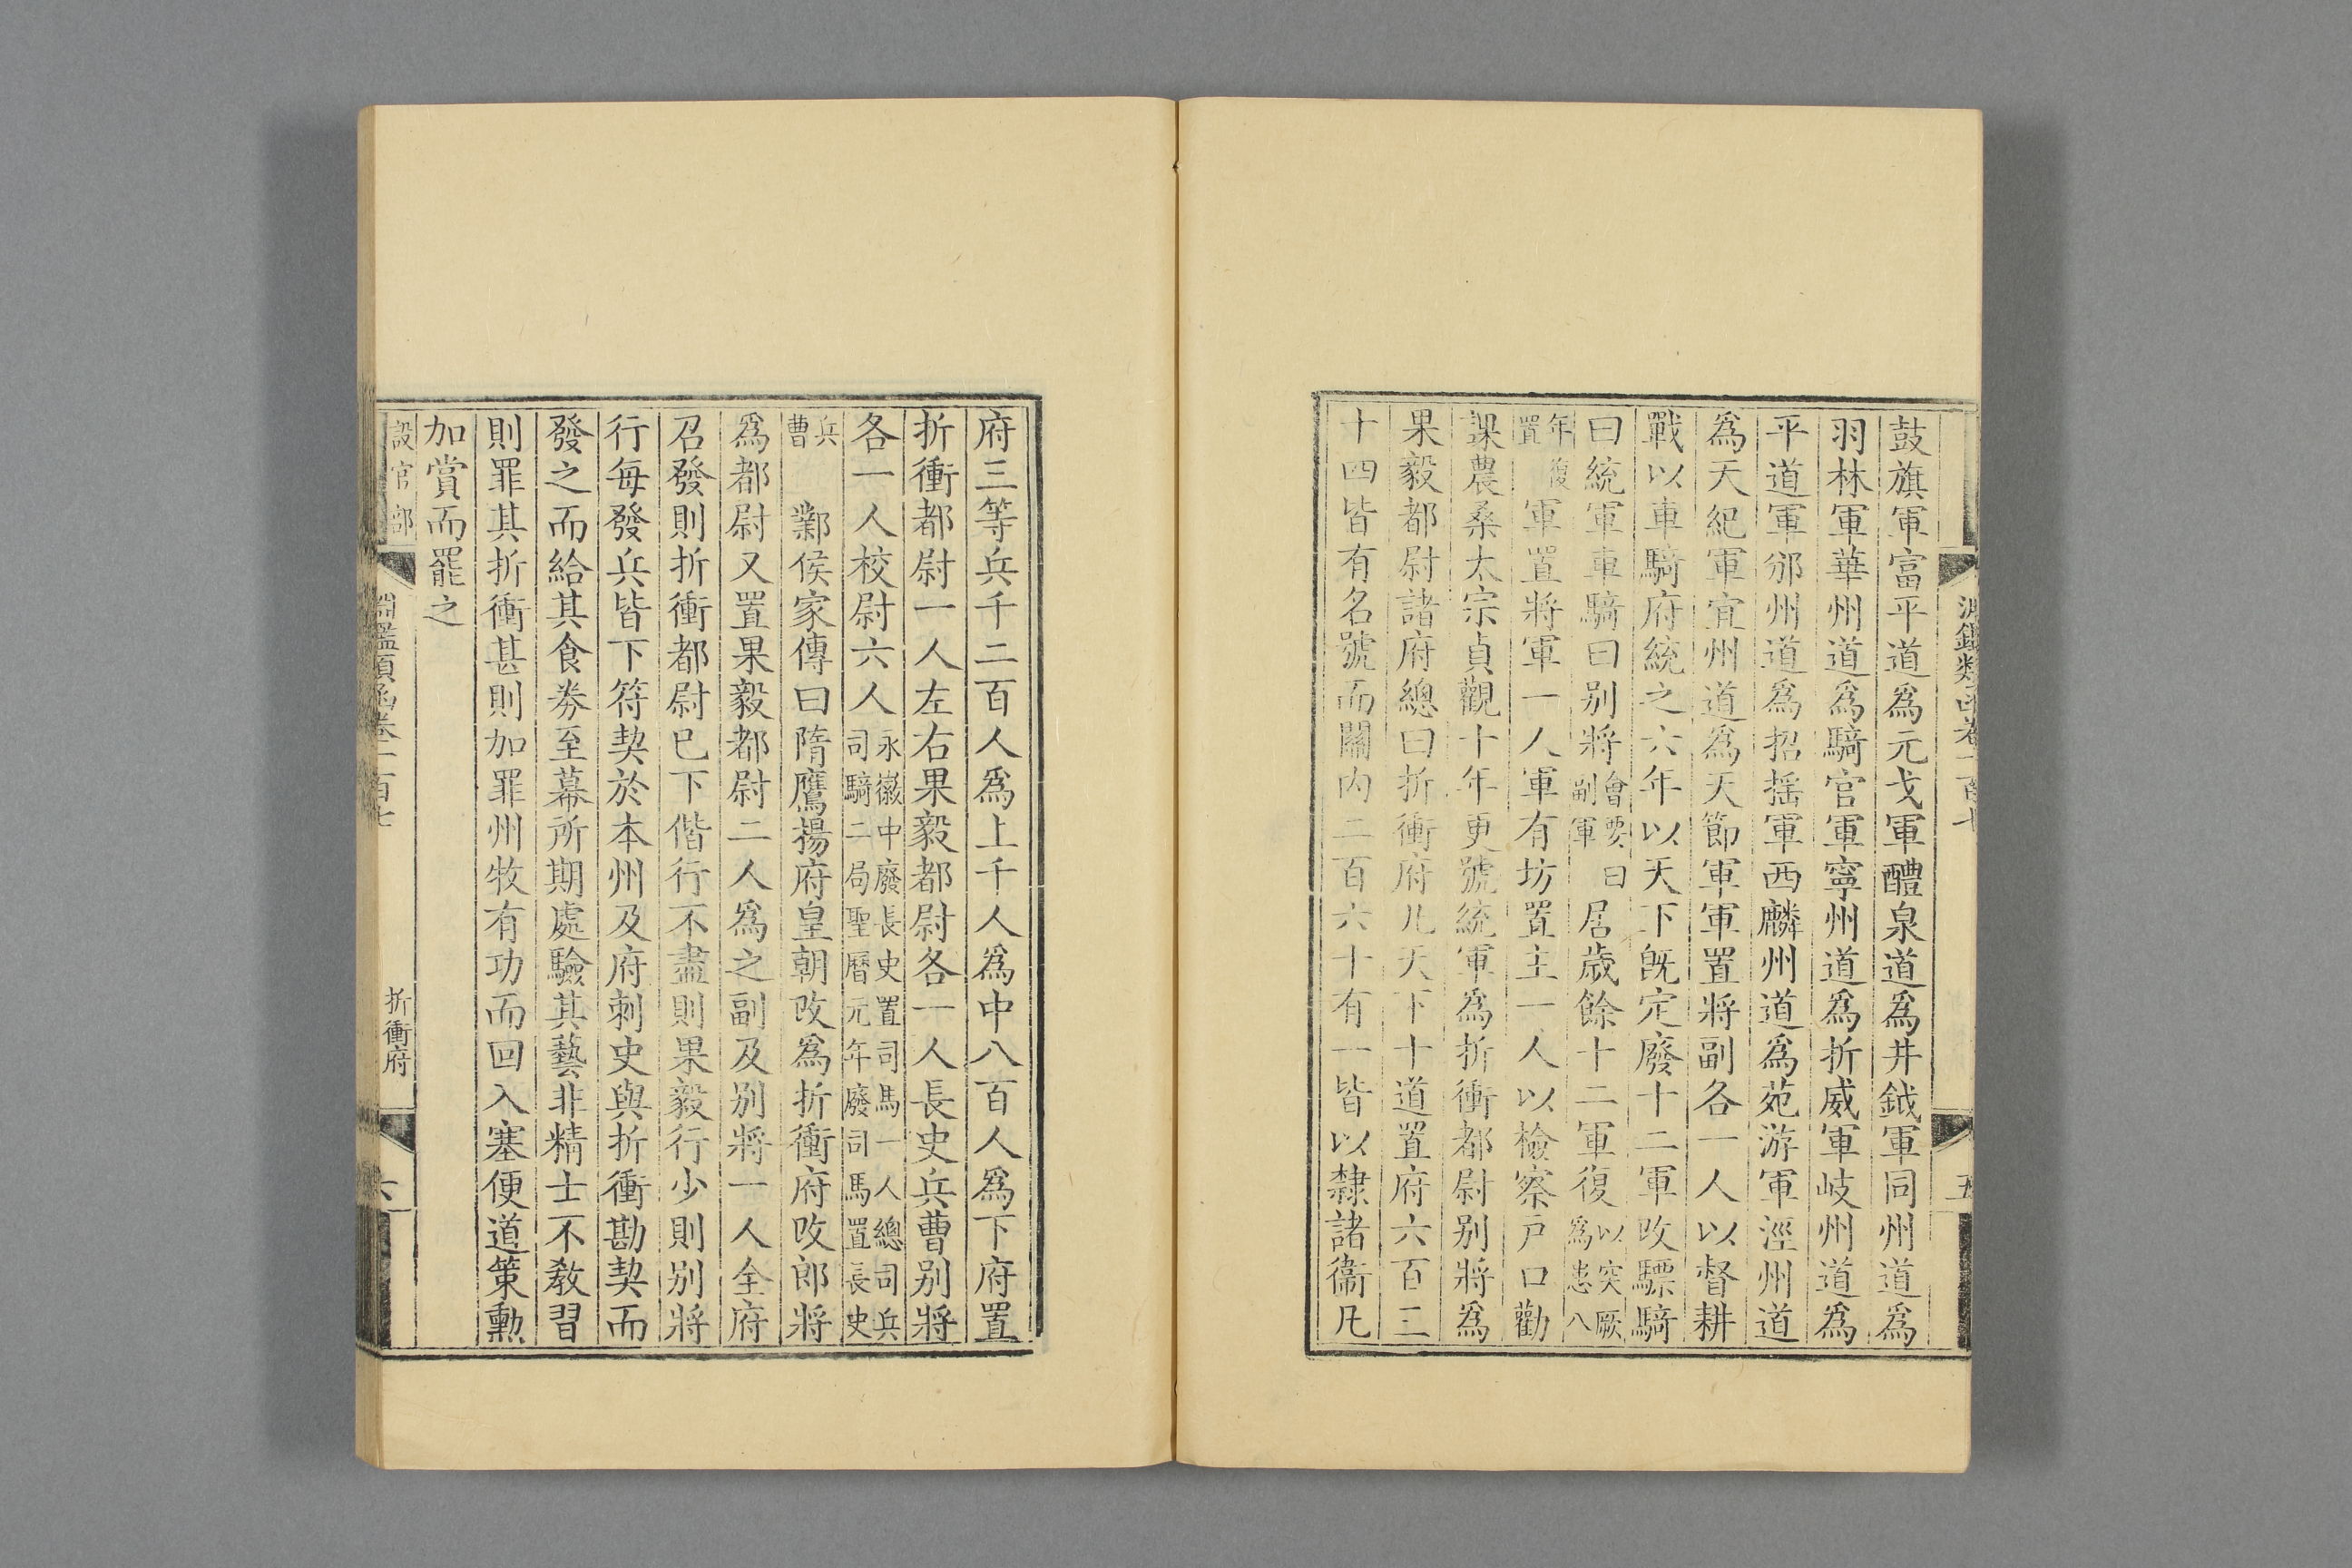 鼓旗軍富平道爲元戈軍醴泉道爲井鉞軍同州道爲
羽林軍華州道爲騎官軍寧州道爲折威軍岐州道爲
平道軍邠州道爲招搖軍西麟州道爲苑游軍涇州道
爲天紀軍宜州道爲天節軍軍置將副各一人以督耕
戰以車騎府統之六年以天下旣定廢十二軍改驃騎
曰統軍車騎曰別將會要曰副軍居歲餘十二軍復以突厥爲患八
年復置軍置將軍一人軍有坊置主一人以檢察戸口勸
課農桑太宗貞觀十年更號統軍爲折衝都尉別將爲
果毅都尉諸府總曰折衝府凡天下十道置府六百三
十四皆有名號而關內二百六十有一皆以隸諸衞凡
府三等兵千二百人爲上千人爲中八百人爲下府置
折衝都尉一人左右果毅都尉各一人長史兵曹別將
各一人校尉六人永徽中廢長史置司馬一人總司兵司騎二局聖曆元年廢司馬置長史
兵曹鄴侯家傳曰隋鷹揚府皇朝改爲折衝府改郎將
爲都尉又置果毅都尉二人爲之副及別將一人全府
召發則折衝都尉已下偕行不盡則果毅行少則別將
行每發兵皆下符契於本州及府刺史與折衝勘契而
發之而給其食券至幕所期處驗其藝非精士不敎習
則罪其折衝甚則加罪州牧有功而回入塞便道策勳
加賞而罷之
設官部
淵鑑類函卷一百七
折衝府
六